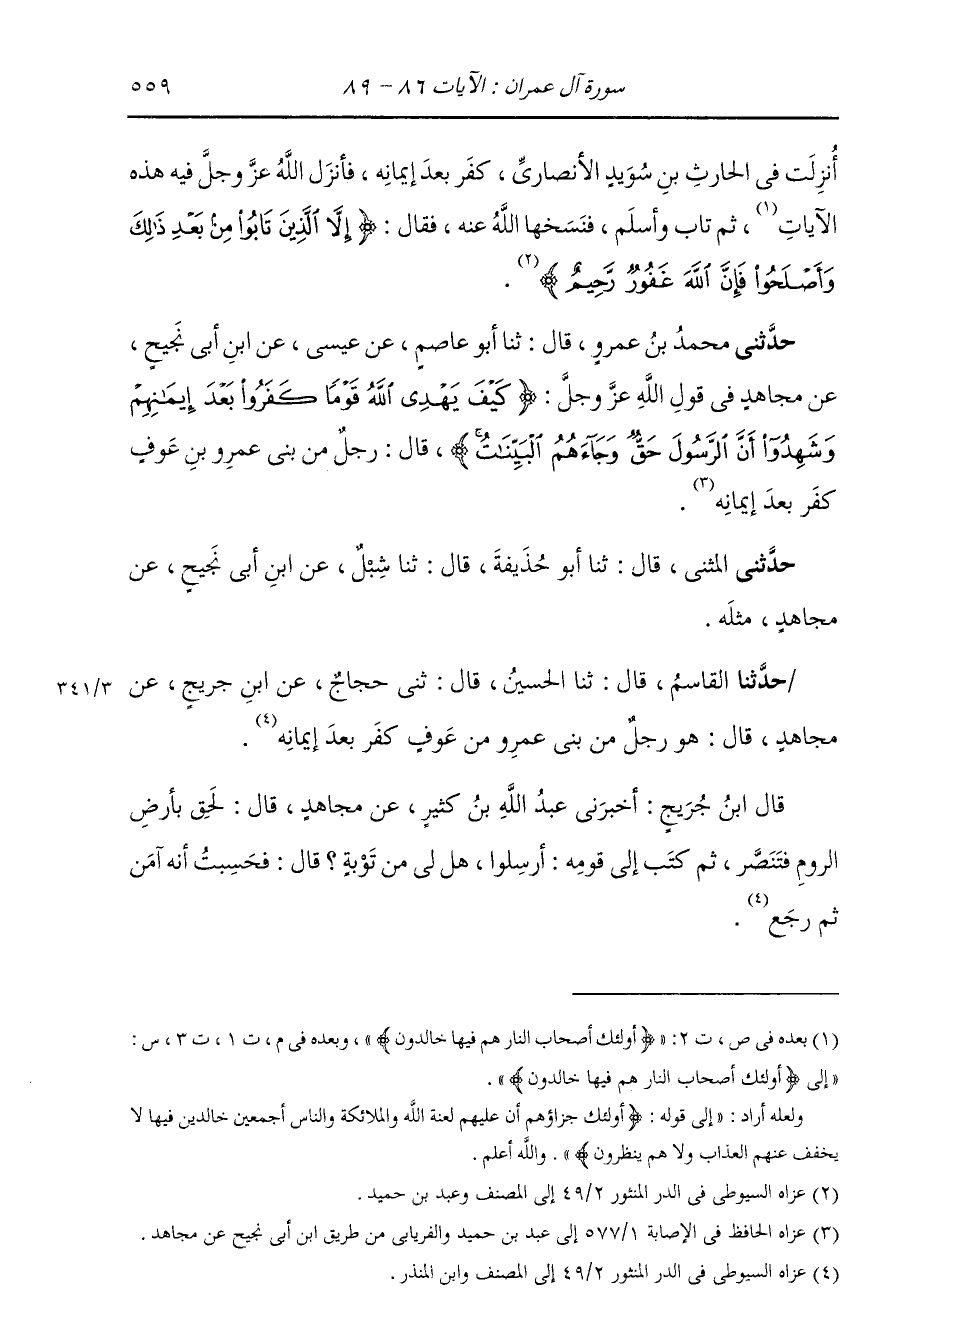 سورة آل عمران : الآيات ٨٦ - ٨٩ ٥٥٩
أُنزِلَت فى الحارثِ بنِ سُوَيدٍ الأنصارىِّ ، كفَر بعدَ إيمانِه ، فأنزَل اللَّهُ عزَّ وجلَّ فيه هذه
الآياتِ(١) ، ثم تاب وأسلَم ، فنَسَخها اللَّهُ عنه ، فقال : ﴿ إِلَّا ٱلَّذِينَ تَابُوا۟ مِنۢ بَعْدِ ذَٰلِكَ
وَأَصْلَحُوا۟ فَإِنَّ ٱللَّهَ غَفُورٌ رَّحِيمٌ ﴾(٢) .
حدَّثنى محمدُ بنُ عمرٍو ، قال : ثنا أبو عاصمٍ ، عن عيسى ، عن ابنِ أبى نَجيحٍ ،
عن مجاهدٍ فى قولِ اللَّهِ عزَّ وجلَّ : ﴿ كَيْفَ يَهْدِى ٱللَّهُ قَوْمًا كَفَرُوا۟ بَعْدَ إِيمَٰنِهِمْ
وَشَهِدُوٓا۟ أَنَّ ٱلرَّسُولَ حَقٌّ وَجَآءَهُمُ ٱلْبَيِّنَٰتُ ۚ ﴾ ، قال : رجلٌ من بنى عمرِو بنِ عَوفٍ
كفَر بعدَ إيمانِه(٣) .
حدَّثنى المثنى ، قال : ثنا أبو حُذَيفةَ ، قال : ثنا شِبْلٌ ، عن ابنِ أبى نَجيحٍ ، عن
مجاهدٍ ، مثلَه .
/حدَّثنا القاسمُ ، قال : ثنا الحسينُ ، قال : ثنى حجاجٌ ، عن ابنِ جريجٍ ، عن ٣٤١/٣
مجاهدٍ ، قال : هو رجلٌ من بنى عمرِو من عَوفٍ كفَر بعدَ إيمانِه(٤) .
قال ابنُ جُرَيجٍ : أخبرَنى عبدُ اللَّهِ بنُ كثيرٍ ، عن مجاهدٍ ، قال : لَحِق بأرضِ
الرومِ فتَنَصَّر ، ثم كتَب إلى قومِه : أرسِلوا ، هل لى من تَوْبةٍ ؟ قال : فحَسِبتُ أنه آمَن
ثم رجَع(٤) .
(١) بعده فى ص ، ت ٢ : « ﴿ أولئك أصحاب النار هم فيها خالدون ﴾ » ، وبعده فى م ، ت ١ ، ت ٣ ، س :
« إلى ﴿ أولئك أصحاب النار هم فيها خالدون ﴾ » .
ولعله أراد : « إلى قوله : ﴿ أولئك جزاؤهم أن عليهم لعنة اللَّه والملائكة والناس أجمعين خالدين فيها لا
يخفف عنهم العذاب ولا هم ينظرون ﴾ » . واللَّه أعلم .
(٢) عزاه السيوطى فى الدر المنثور ٤٩/٢ إلى المصنف وعبد بن حميد .
(٣) عزاه الحافظ فى الإصابة ٥٧٧/١ إلى عبد بن حميد والفريابى من طريق ابن أبى نجيح عن مجاهد .
(٤) عزاه السيوطى فى الدر المنثور ٤٩/٢ إلى المصنف وابن المنذر .